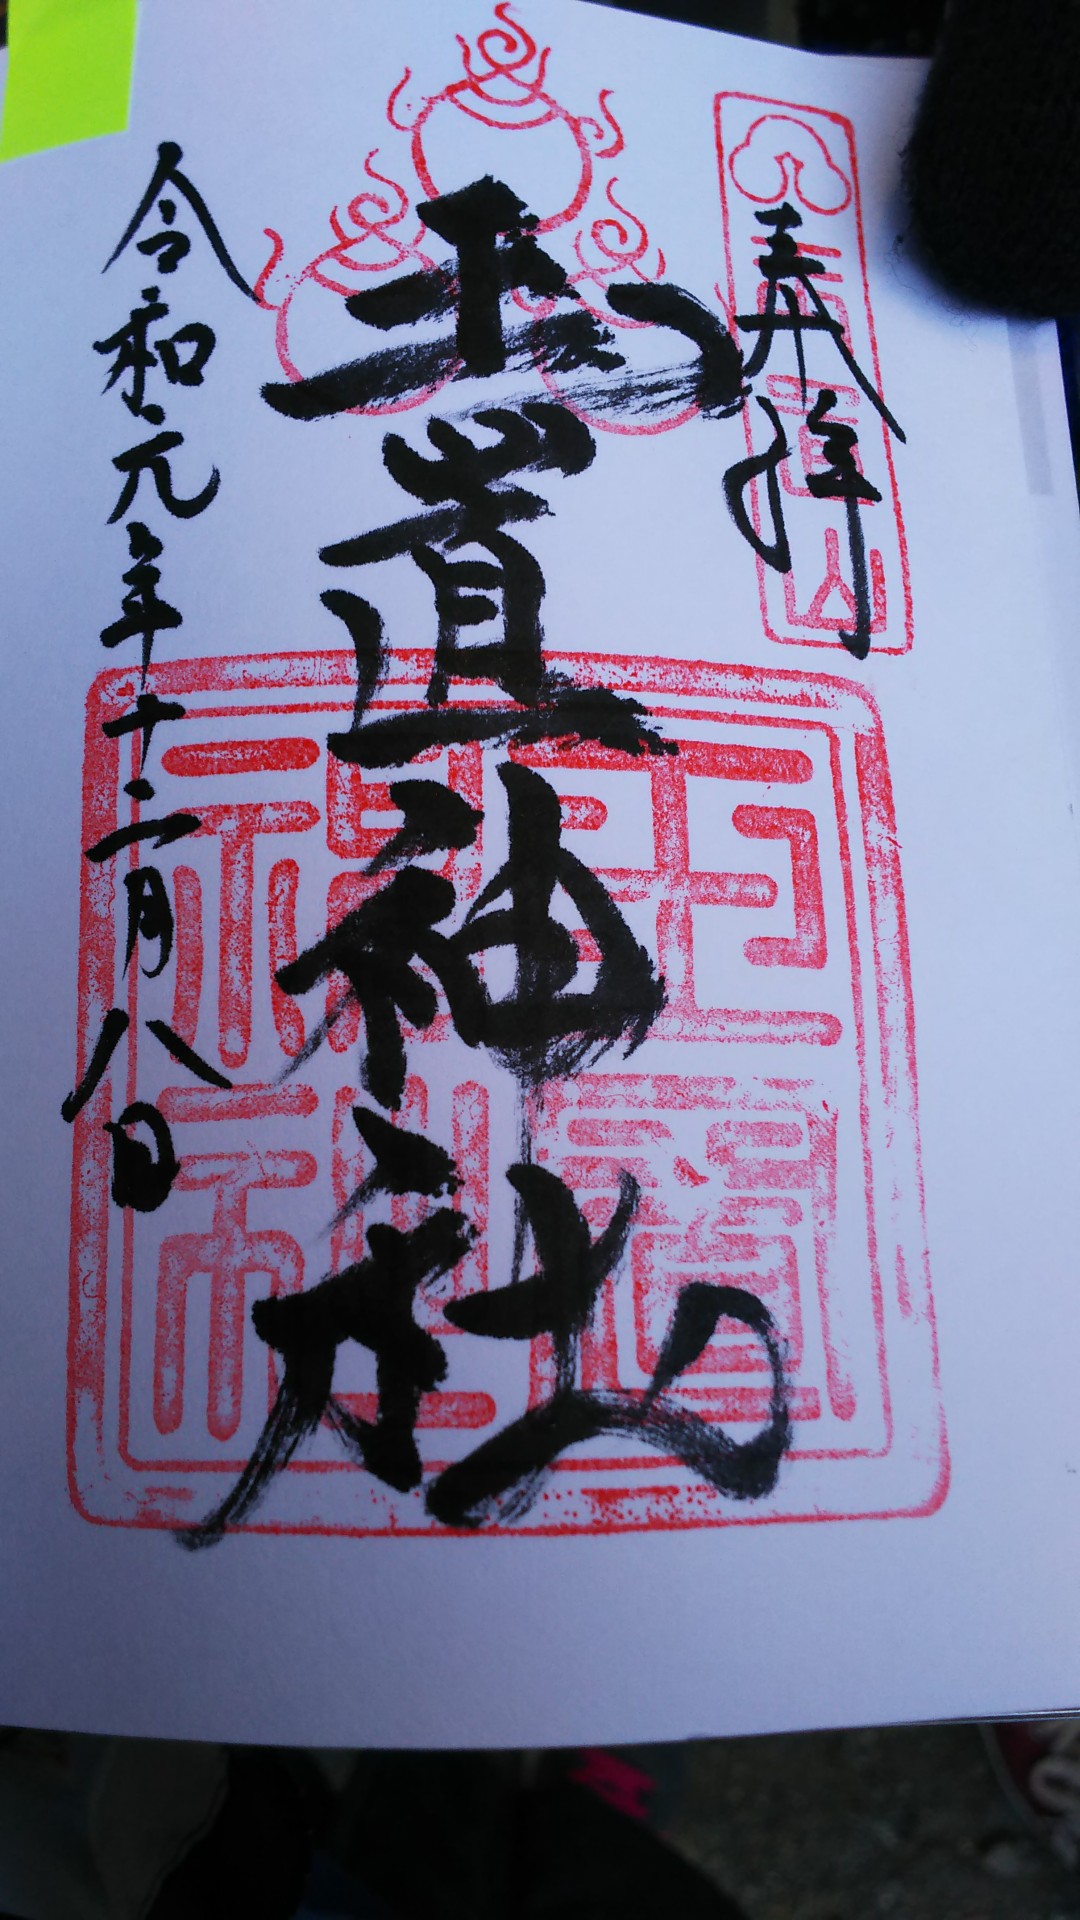 奉拝
玉置山
玉置神社
玉置神社
令和元年十二月八日